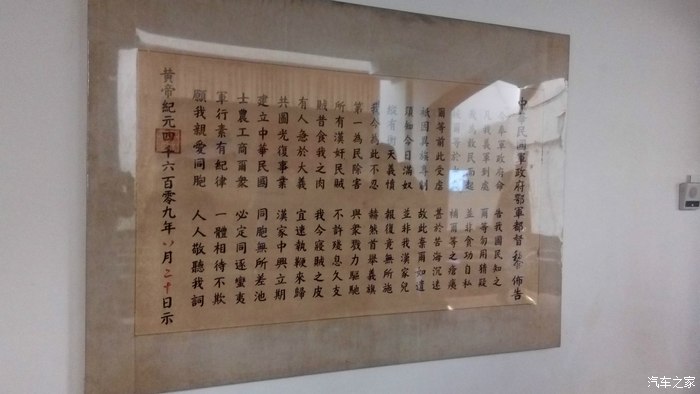 中華民國軍政府鄂軍都督黎 佈告
今奉軍政府命 告我國民知之
凡我義軍到處 爾等勿用猜疑
我為救民而起 並非貪功自私
拔爾等於水火 補爾等之瘡痍
爾等前此受虐 甚於苦海沉迷
祇因異族專制 故此棄爾如遺
須知今日滿奴 並非我漢家兒
縱有衝天義憤 報復竟無所施
我今為此不忍 赫然首舉義旗
第一為民除害 與衆戮力驅馳
所有漢奸民賊 不許殘息久支
賊昔食我之肉 我今寢賊之皮
有人急於大義 宜速執鞭來歸
共圖光復事業 漢家中興立期
建立中華民國 同胞無所差池
士農工商爾衆 必定同逐蠻夷
軍行素有紀律 一體相待不欺
願我親愛同胞 人人敬聽我詞
黃帝紀元四千六百零九年八月二十日示
汽车之家